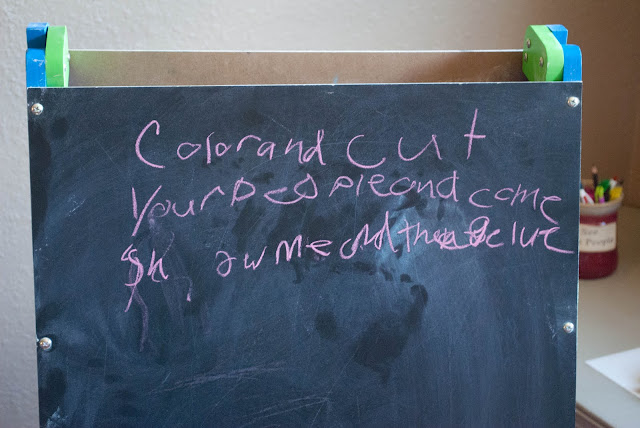 Color and cut
Your People and come
Show me and then
People